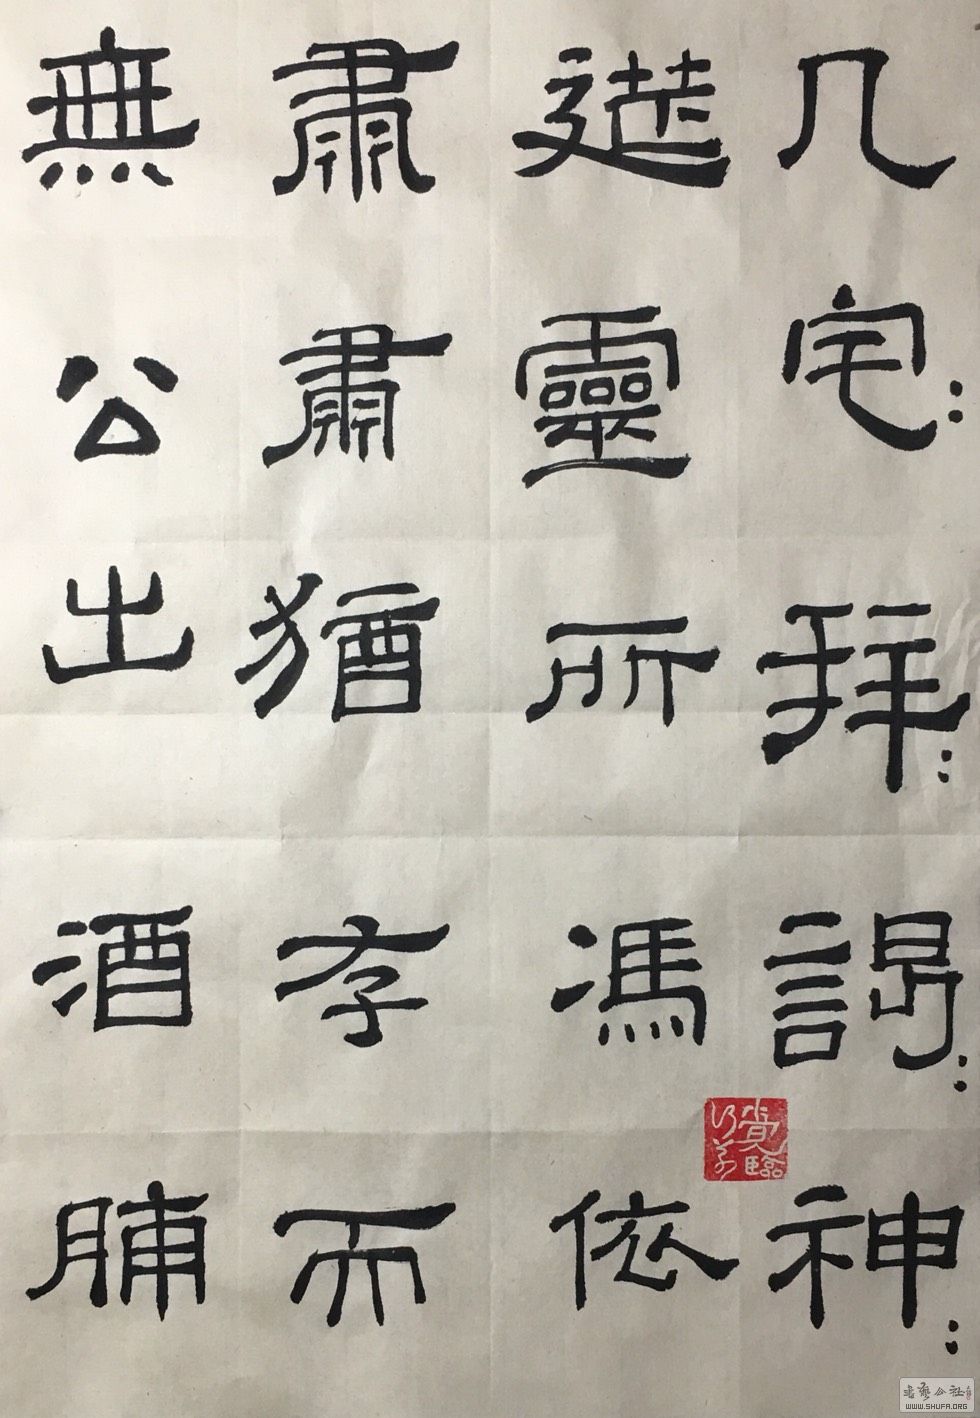 几宅拜謁神
筵靈所馮依
肅肅猶存而
無公出酒脯
书艺公社
WWW.SHUFA.ORG